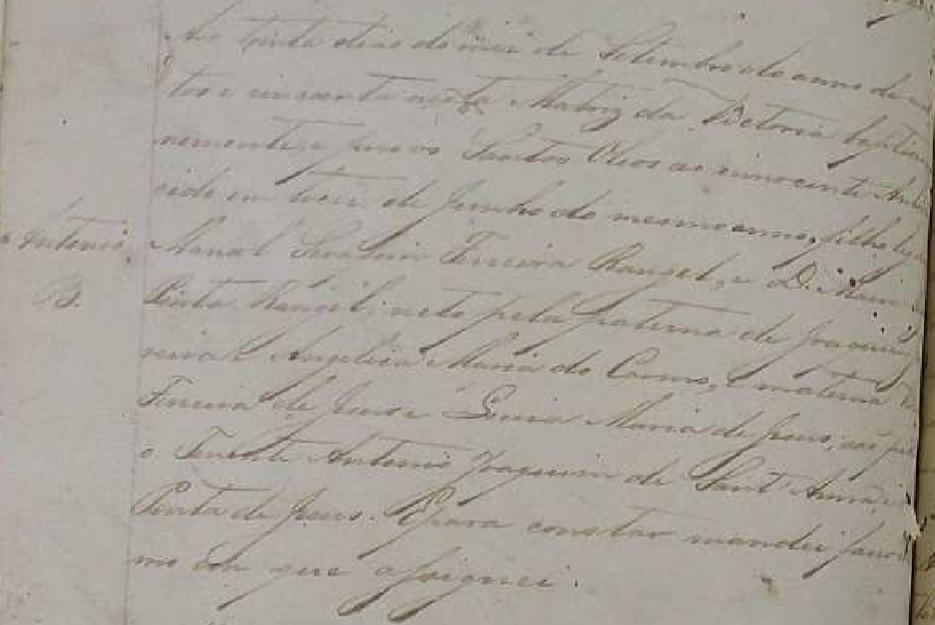 Aos trinta dias do mez de Setembro do anno de
tos e cincoenta nesta Matriz da Victoria baptisou
nemente, e puz os Santos Oleos ao innocente Anto
cido em treze de Junho do mesmo anno, filho leg
Antonio, Manoel Serafim Ferreira Rangel, e D. Maria
B. Penta Rangel; neto pela paterna de Joaquim
reira e Angelica Maria do Carmo, e materna de
Ferreira de Jesus e Luiza Maria de Jesus;
o Tenente Antonio Joaquim de Sant'Anna, e
Penta de Jesus. E para constar mandei fazer
mo em que assignei.